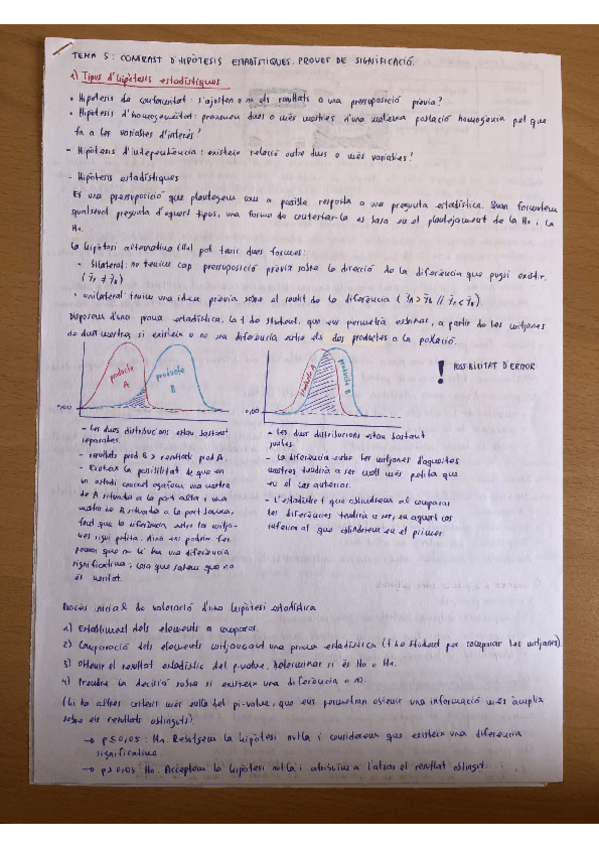 TEMA 5: CONTRAST D'HIPÒTESIS ESTADÍSTIQUES. PROVES DE SIGNIFICACIÓ.
1) Tipus d'hipòtesis estadístiques
• Hipòtesis de conformitat: s'ajusten o no els resultats a una pressuposició prèvia?
• Hipòtesis d'homogeneïtat: provenen dues o més mostres d'una mateixa població homogènia pel que
fa a les variables d'interès?
- Hipòtesis d'independència: existeix relació entre dues o més variables?
- Hipòtesis estadístiques
És una pressuposició que plantegem com a possible resposta a una pregunta estadística. Quan formulem
qualsevol pregunta d'aquests tipus, una forma de contestar-la es basa en el plantejament de la H₀ i la
H₁.
La hipòtesi alternativa (H₁) pot tenir dues formes:
- Bilateral: no tenim cap pressuposició prèvia sobre la direcció de la diferència que pugui existir.
• unilateral tenim una idea prèvia sobre el sentit de la diferència
Disposem d'una prova estadística, la t de Student, que ens permetrà esbrinar, a partir de les mitjanes
de dues mostres, si existeix o no una diferència entre els dos productes a la població.
producte A
producte B
producte A
producte B
! POSSIBILITAT D'ERROR
0,00
0,00
- Les dues distribucions estan bastant
separades.
- resultats prod B > resultats prod A.
- Existeix la possibilitat de que en
un estudi concret agafem una mostra
de A situada a la part alta i una
mostra de B situada a la part baixa,
fent que la diferència entre les mitja-
nes sigui petita. Això ens podria fer
pensar que no hi ha una diferència
significativa; cosa que sabem que no
és veritat.
- Les dues distribucions estan bastant
juntes.
- La diferència entre les mitjanes d'aquestes
mostres tendirà a ser molt més petita que
en el cas anterior.
- L'estadístic t que obtindrem al comparar
les diferències tendirà a ser, en aquest cas
inferior al que obtindrem en el primer.
Procés inicial de valoració d'una hipòtesi estadística
1) Establiment dels elements a comparar.
2) Comparació dels elements mitjançant una prova estadística (t de Student per comparar les mitjanes)
3) Obtenir el resultat estadístic del p-value, determinar si és H₀ o H₁.
4) Prendre la decisió sobre si existeix una diferència o no.
(hi ha altres criteris més enllà del pi-value, que ens permetran obtenir una informació més àmplia
sobre els resultats obtinguts).
→ p≤0,05: H₁. Rebutgem la hipòtesi nul·la i considerem que existeix una diferència
significativa.
→ p>0,05 H₀. Acceptem la hipòtesi nul·la i atribuïm a l'atzar el resultat obtingut.